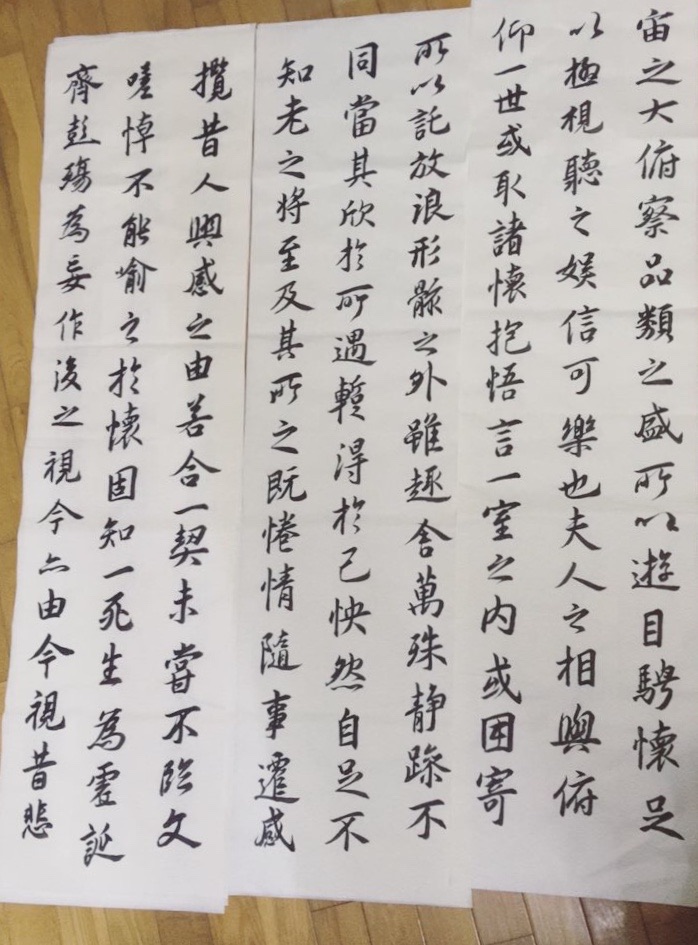 宙之大俯察品類之盛所以遊目騁懷足
以極視聽之娛信可樂也夫人之相與俯
仰一世或取諸懷抱悟言一室之內或因寄
所以託放浪形骸之外雖趣舍萬殊静躁不
同當其欣於所遇蹔得於己怏然自足不
知老之将至及其所之既惓情隨事遷感
攬昔人興感之由若合一契未嘗不臨文
嗟悼不能喻之於懷固知一死生為虛誕
齊彭殤為妄作後之視今亦由今視昔悲